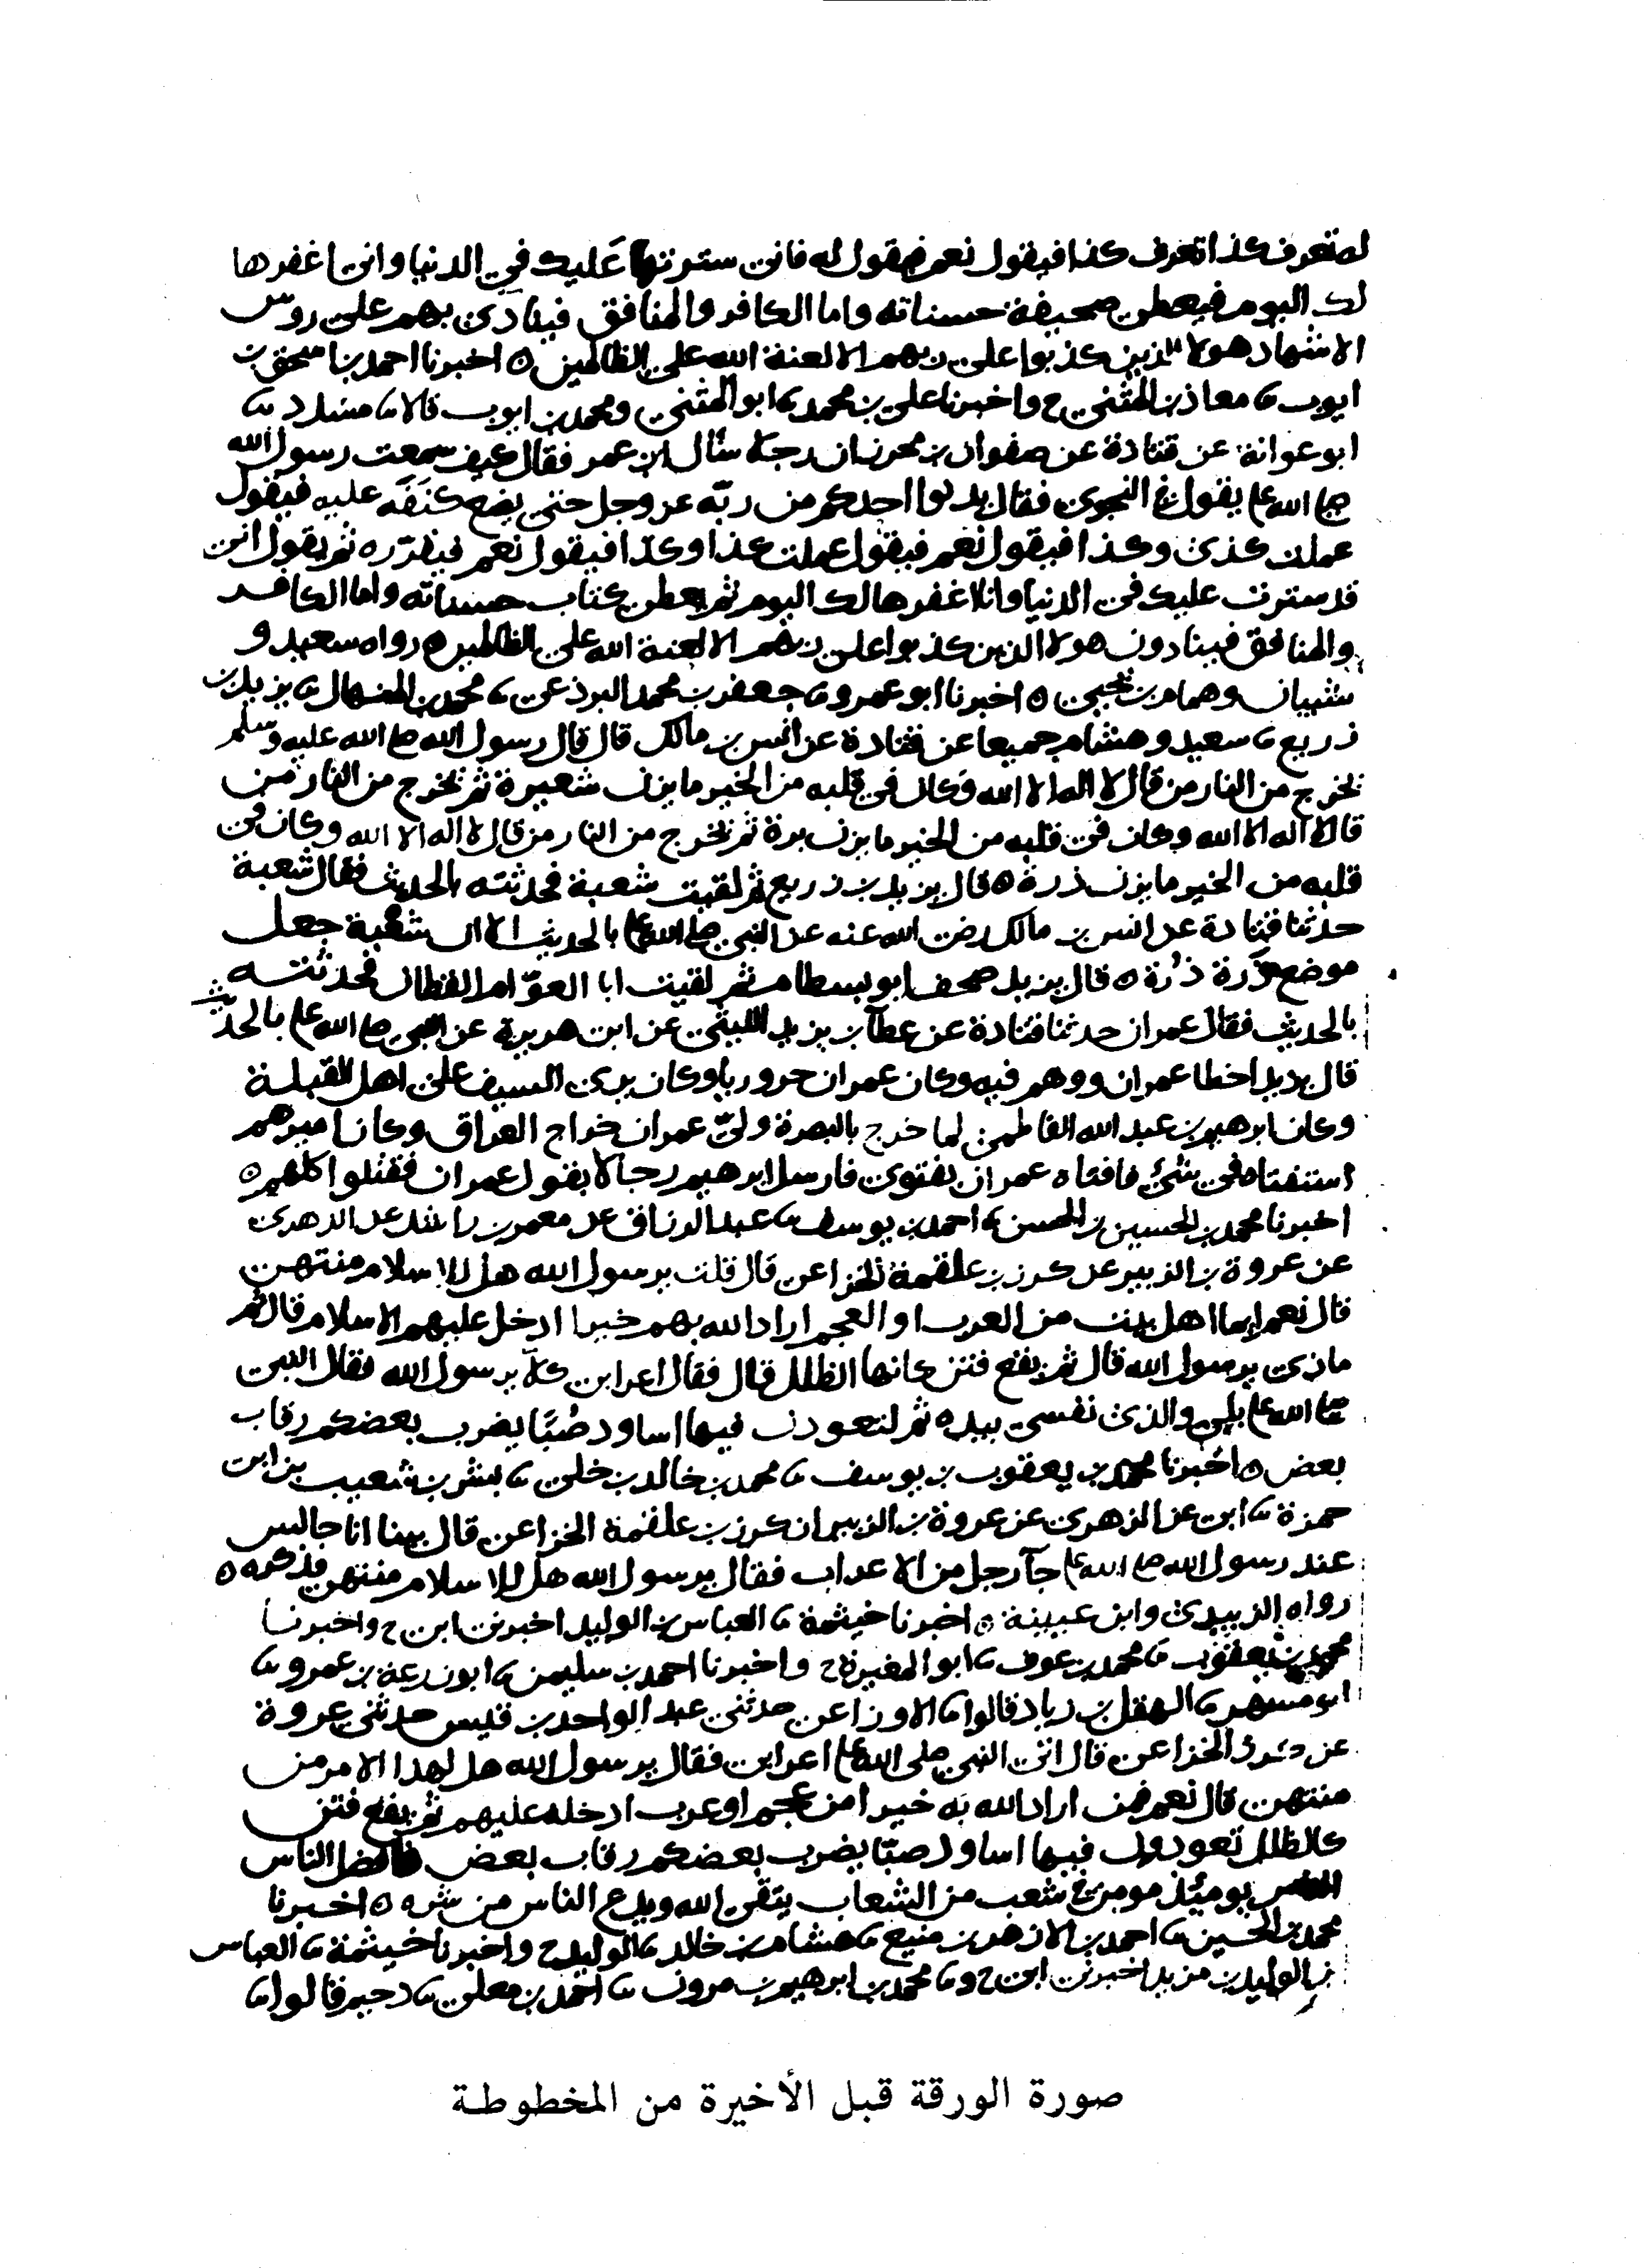 له تعرف كذا تعرف كذا فيقول نعم فيقول له فاني سترتها عليك في الدنيا واني اغفرها
لك اليوم فيعطى صحيفة حسناته واما الكافر والمنافق فينادى بهم على روس
الاشهاد هولا الذين كذبوا على ربهم الا لعنة الله على الظالمين ه اخبرنا احمد بن اسحق بن
ايوب ثنا معاذ بن المثنى ح واخبرنا علي بن محمد ثنا ابو المثنى ومحمد بن ايوب قالا ثنا مسدد ثنا
ابو عوانة عن قتادة عن صفوان بن محرز ان رجلا سال ابن عمر فقال كيف سمعت رسول الله
صلى الله عليه يقول في النجوى فقال يدنوا احدكم من ربه عز وجل حتى يضع كنفه عليه فيقول
عملت كذى وكذا فيقول نعم فيقول عملت كذا وكذا فيقول نعم فيقرره ثم يقول اني
قد سترت عليك في الدنيا وانا اغفرها لك اليوم ثم يعطى كتاب حسناته واما الكافر
والمنافق فينادون هولا الذين كذبوا على ربهم الا لعنة الله على الظالمين ه رواه سعيد و
شيبان وهمام بن يحيى ه اخبرنا ابو عمرو ثنا جعفر بن محمد البرذعي ثنا محمد بن المنهال ثنا يزيد بن
زريع ثنا سعيد وهشام جميعا عن قتادة عن انس بن مالك قال قال رسول الله صلى الله عليه وسلم
يخرج من النار من قال لا اله الا الله وكان في قلبه من الخير ما يزن شعيرة ثم يخرج من النار من
قال لا اله الا الله وكان في قلبه من الخير ما يزن برة ثم يخرج من النار من قال لا اله الا الله وكان في
قلبه من الخير ما يزن ذرة ه قال يزيد بن زريع ثم لقيت شعبة فحدثته بالحديث فقال شعبة
حدثنا قتادة عن انس بن مالك رضى الله عنه عن النبي صلى الله عليه بالحديث الا ان شعبة جعل
موضع ذرة ذرة ه قال يزيد صحف ابو بسطام ثم لقيت ابا العوام القطان فحدثته
بالحديث فقال عمران حدثنا قتادة عن عطا بن يزيد الليثي عن ابي هريرة عن النبي صلى الله عليه بالحديث
قال يزيد اخطا عمران ووهم فيه وكان عمران حروريا وكان يرى السيف على اهل القبلة
وكان ابرهيم بن عبد الله الفاطمي لما خرج بالبصرة ولى عمران خراج العراق وكان اميرهم
استفتاه في شئ فافتاه عمران بفتوى فارسل ابرهيم رجالا بقول عمران فقتلوا كلهم ه
اخبرنا محمد بن الحسين بن الحسن ثنا احمد بن يوسف ثنا عبد الرزاق عن معمر بن راشد عن الزهري
عن عروة بن الزبير عن كرز بن علقمة الخزاعي قال قلت يرسول الله هل للاسلام منتهى
قال نعم ايما اهل بيت من العرب او العجم اراد الله بهم خيرا ادخل عليهم الاسلام قال ثم
ماذى يرسول الله قال ثم يقع فتن كانها الظلل قال فقال اعرابي كلا يرسول الله فقال النبي
صلى الله عليه بلى والذي نفسي بيده ثم لتعودن فيها اساود صبا يضرب بعضكم رقاب
بعض ه اخبرنا محمد بن يعقوب بن يوسف ثنا محمد بن خالد بن خلي ثنا بشر بن شعيب بن ابي
حمزة ثنا ابي عن الزهري عن عروة بن الزبير ان كرز بن علقمة الخزاعي قال بينا انا جالس
عند رسول الله صلى الله عليه جا رجل من الاعراب فقال يرسول الله هل للاسلام منتهى فذكره ه
رواه الزبيدي وابن عيينة ه اخبرنا خيثمة ثنا العباس بن الوليد اخبرني ابي ح واخبرنا
محمد بن يعقوب ثنا محمد بن عوف ثنا ابو المغيرة ح واخبرنا احمد بن سليمن ثنا ابو زرعة بن عمرو ثنا
ابو مسهر ثنا الهقل بن زياد قالوا ثنا الاوزاعي حدثني عبد الواحد بن قيس حدثني عروة
عن كرز الخزاعي قال اتى النبي صلى الله عليه اعرابي فقال يرسول الله هل لهذا الامر من
منتهى قال نعم فمن اراد الله به خيرا من عجم او عرب ادخله عليهم ثم يقع فتن
كالظلل تعودون فيها اساود صبا يضرب بعضكم رقاب بعض فافضل الناس
يومئذ مومن في شعب من الشعاب يتقي الله ويدع الناس من شره ه اخبرنا
محمد بن الحسين ثنا احمد بن الازهر بن منيع ثنا هشام بن خالد ثنا الوليد ح واخبرنا خيثمة ثنا العباس
بن الوليد بن مزيد اخبرني ابي ح وثنا محمد بن ابرهيم بن مرون ثنا احمد بن معلى ثنا دحيم قالوا ثنا
صورة الورقة قبل الأخيرة من المخطوطة